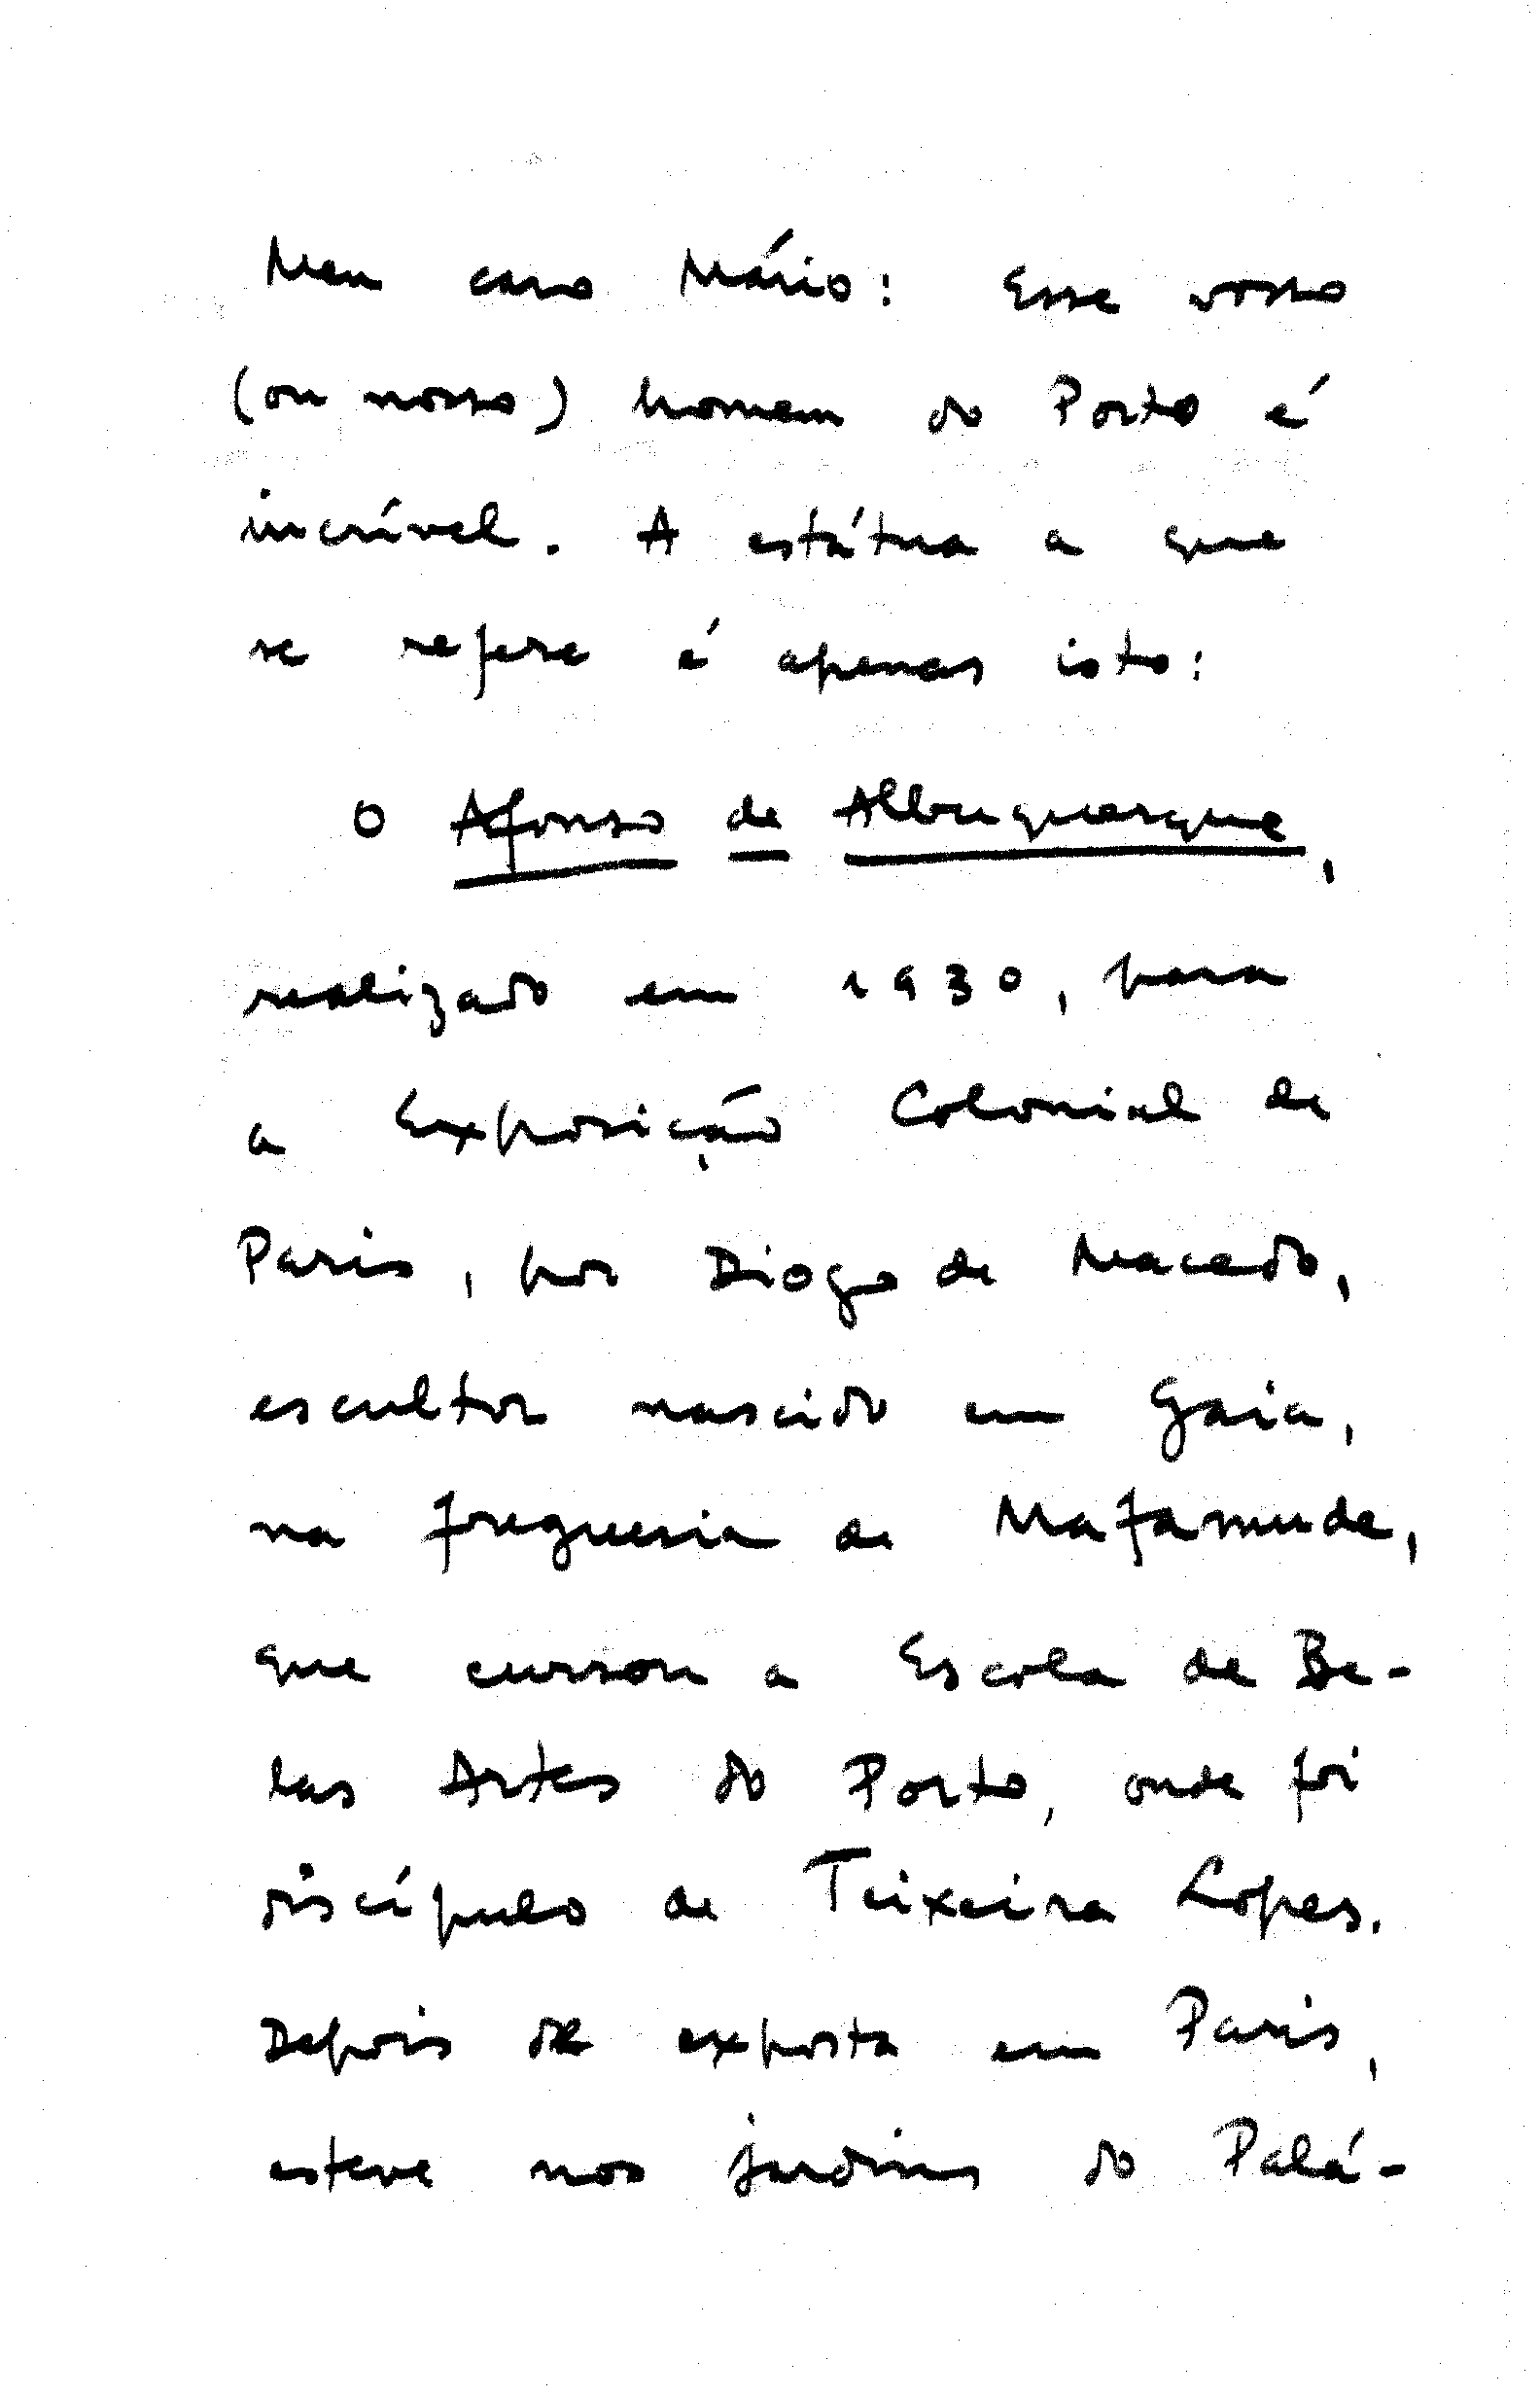 Meu caro Mário: Esse vosso
(ou nosso) homem do Porto é
incrível. A estátua a que
se refere é apenas isto:
O Afonso de Albuquerque,
realizado em 1930, para
a Exposição Colonial de
Paris, por Diogo de Macedo,
escultor nascido em Gaia,
na freguesia de Mafamude,
que cursou a Escola de Be-
las Artes do Porto, onde foi
discípulo de Teixeira Lopes.
Depois de exposta em Paris,
esteve nos jardins do Palá-